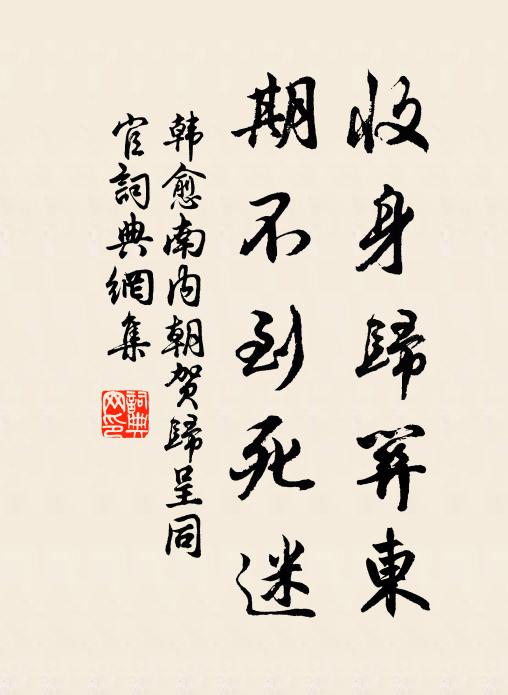 收身歸關東
期不到死迷
韩愈南内朝贺歸呈同
官詞典網集
詞典
网印